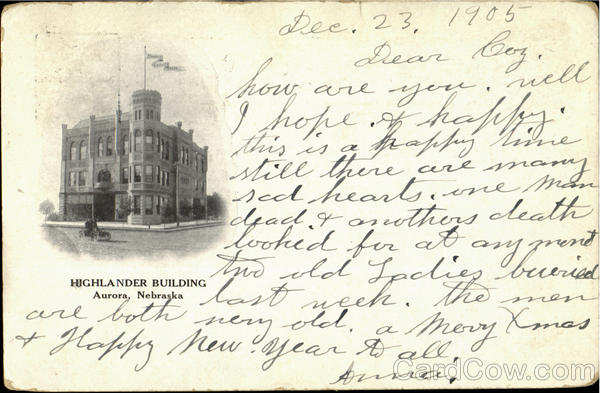 Dec. 23, 1905
Dear Coz.
how are you. well
I hope. & happy.
this is a happy time
still there are many
sad hearts. one man
dead & anothers death
looked for at any moment
two old Ladies buried
last week. the men
are both very old. a Merry Xmas
& Happy New Year to all
HIGHLANDER BUILDING
Aurora, Nebraska
CardCow.com